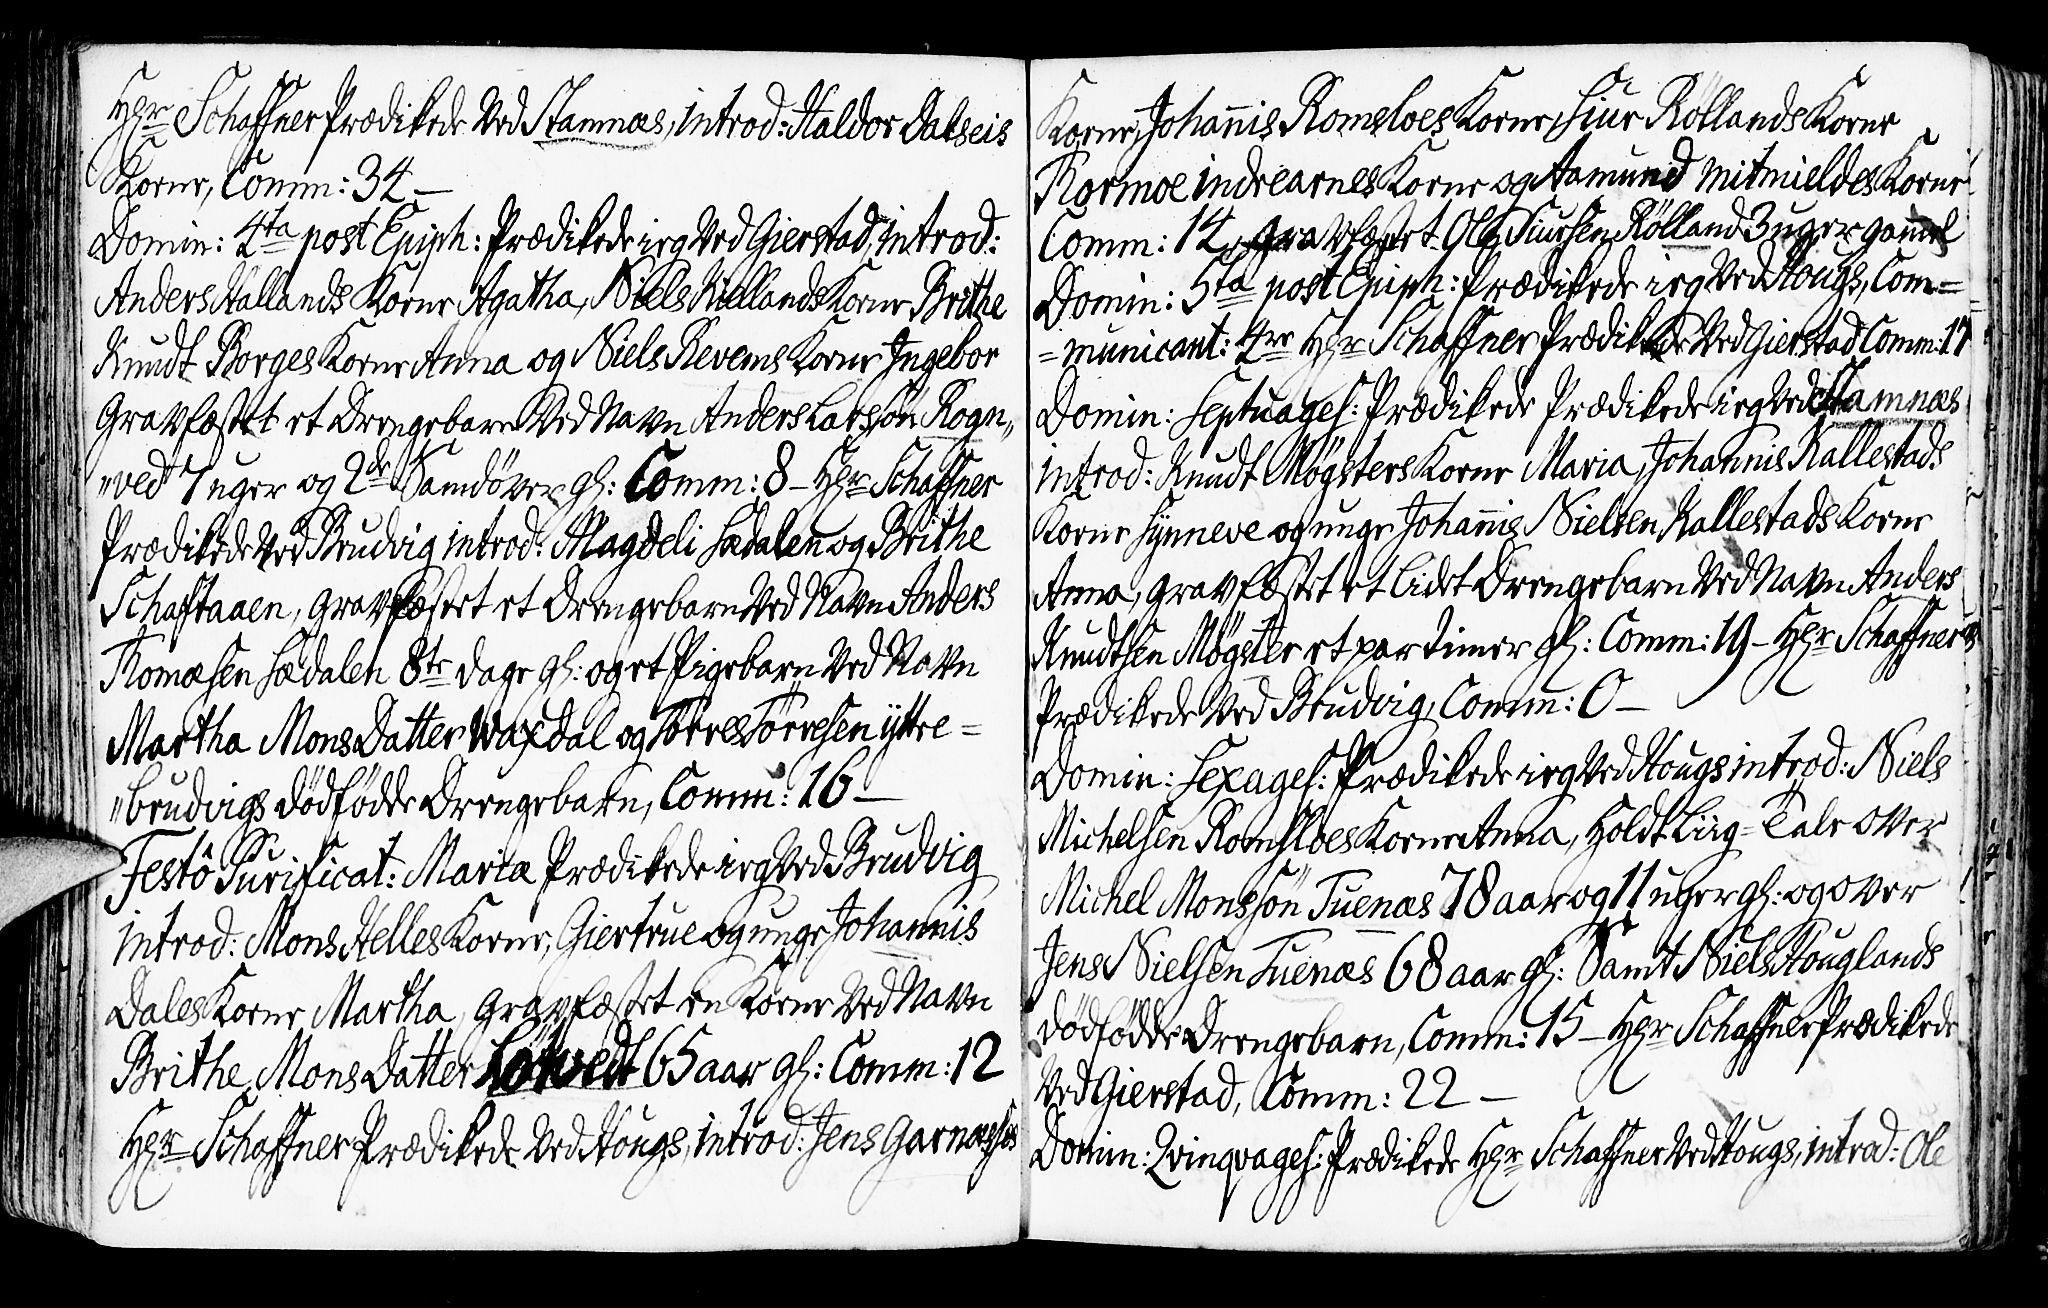 Hr Schaffner Prædikede Ved Stamnæs, introd: Haldor Dalseis
Kone, Comm: 34 –
Domin: 4ta post Epiph: Prædikede ieg Ved Gierstad, introd:
Anders Hallands Kone Agatha, Niels Kiellands Kone Brithe
Knudt Borges Kone Anna og Niels Revems Kone Ingebor
Gravfæstet et Drengebarn Ved Navn Anders Larssøn Rogn„
„ved 7 uger og 2de Samdöver gl: Comm: 8 – Hr Schaffner
Prædikede Ved Brudvig introd: Magdeli Sædalen og Brithe
Schaftaaen, gravfæstet et Drengebarn Ved Navn Anders
Tomæsen Sædalen 8te dage gl: og et Pigebarn Ved Navn
Martha MonsDatter Waxdal og Törres Törresen yttre=
„brudvigs dödfödde Drengebarn, Comm: 16 –
Festô Purificat: Mariæ Prædikede ieg Ved Brudvig
introd: Mons Helles Kone, Giertrue og unge Johannis
Dales Kone Martha, gravfæstet en Kone Ved Navn
Brithe MonsDatter Lötvedt 65 aar gl: Comm: 12
Hr Schaffner Prædikede Ved Hougs, introd: Jens Garnæsses
Kone, Johannis Romsloes Kone, Siur Röllands Kone
Kormoe indrearnes Kone og Aamund Mitmieldes Kone
Comm: 14 gravfæstet Ole Siursen Rölland 3 uger gamel
Domin: 5ta post Epiph: Prædikede ieg Ved Hougs, Com=
=municant: 4re Hr Schaffner Prædikede Ved Gierstad Comm: 17
Domin: Septuages: Prædikede Prædikede ieg Ved Stamnæs
introd: Knudt Mögsters Kone Maria, Johannis Kallestads
Kone Synneve og unge Johannis Nielsen Kallestads Kone
Anna, gravfæstet et lidet Drengebarn Ved Navn Anders
Knudtsen Mögster et par timer gl: Comm: 19 – Hr Schaffner
Prædikede Ved Brudvig, Comm: 0 –
Domin: Sexages: Prædikede ieg Ved Hougs introd: Niels
Michelsen Romsloes Kone Anna, Holdt Liig=Tale over
Michel Monssön Tuenæs 78 aar og 11 uger gl: og over
Jens Nielsen Tuenæs 68 aar gl: Samt Niels Houglands
dödfödde Drengebarn, Comm: 15 – Hr Schaffner Prædikede
Ved Gierstad, Comm: 22 –
Domin: Qvinqvages: Prædikede Hr Schaffner Ved Hougs, introd: Ole